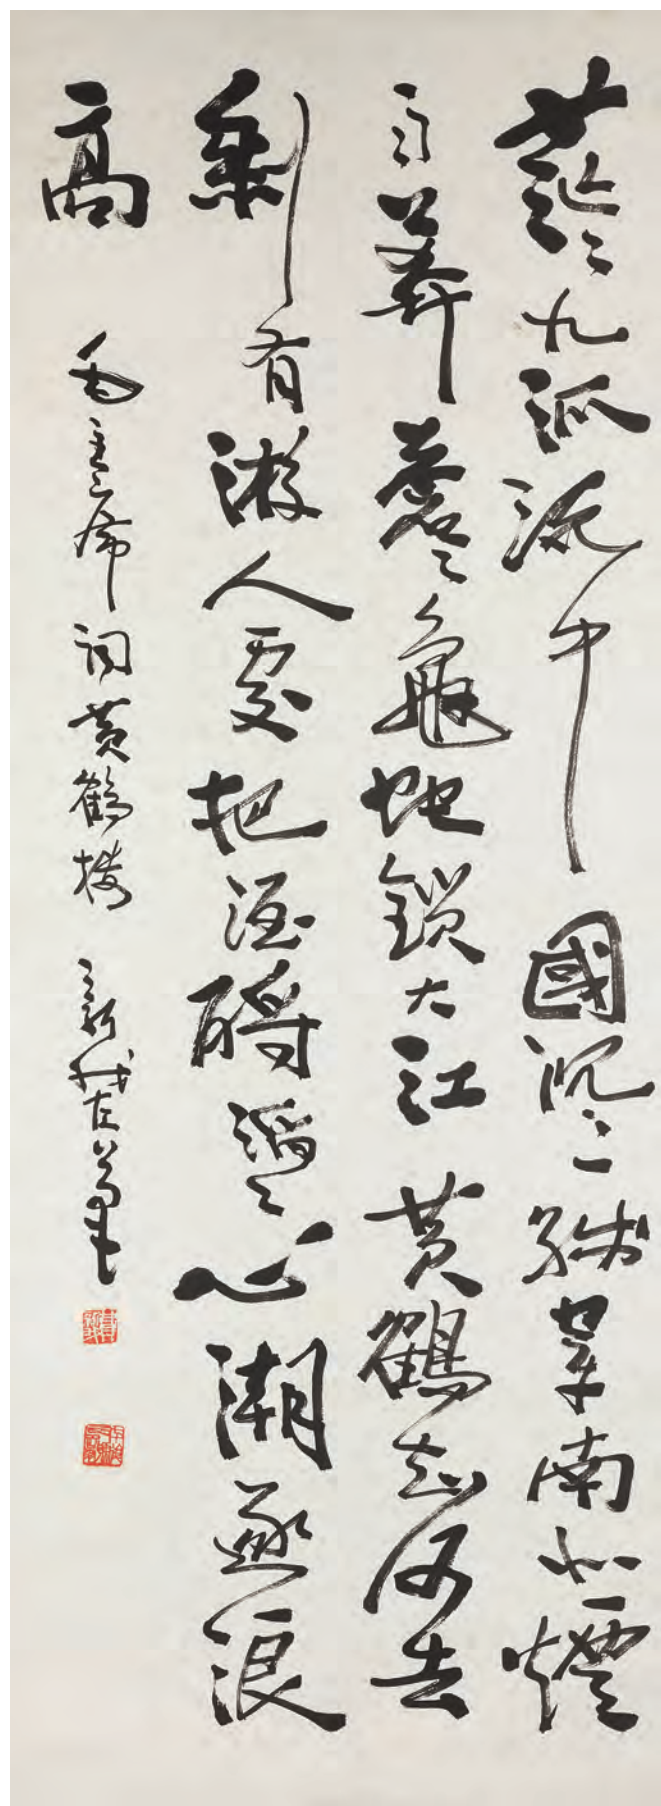 茫〻九派流中國沉〻一線穿南北煙
雨莽蒼〻龜蛇鎖大江黃鶴知何去
剩有游人處把酒酹滔〻心潮逐浪
高
毛主席詞黃鶴樓 新我左筆